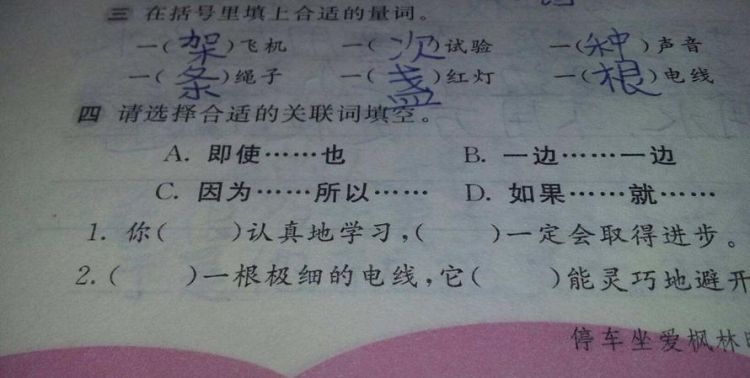 三 在括号里填上合适的量词。
一(架)飞机 一(次)试验 一(种)声音
一(条)绳子 一(盏)红灯 一(根)电线
四 请选择合适的关联词填空。
A. 即使……也 B. 一边……一边
C. 因为……所以…… D. 如果……就……
1. 你( )认真地学习,( )一定会取得进步。
2. ( )一根极细的电线,它( )能灵巧地避开
停车坐爱枫林